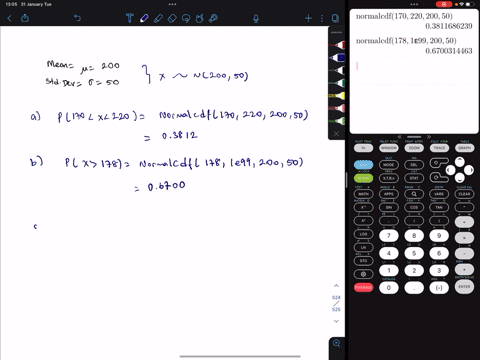 13:05 31 January Tue
Mean = μ = 200
Std.Dev = σ = 50
} X ~ N(200,50)
a) P(170 < x < 220) = Normalcdf(170, 220, 200, 50)
= 0.3812
b) P(X > 178) = Normalcdf(178, 1e99, 200, 50)
= 0.6700
524
525
normalcdf(170,220,200,50)
0.3811686239
normalcdf(178,1ᴇ99,200,50)
0.6700314463
Y= WINDOW ZOOM TRACE GRAPH
MODE DEL
X,T,θ,n STAT
MATH APPS PRGM VARS CLEAR
SIN COS TAN
LOG 7 8 9
LN 4 5 6
STO 1 2 3
0 . (-) ENTER